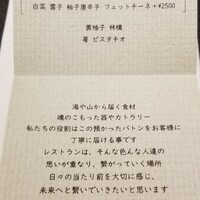 白菜 雲子 柚子唐辛子 フェットチーネ +¥2500
黄柚子 林檎
苺 ピスタチオ
海や山から届く食材
魂のこもった器やカトラリー
私たちの役割はこの預かったバトンをお客様に
丁寧に届ける事です
レストランは、そんな色んな人達の
思いが重なり、繋がっていく場所
日々の当たり前を大切に感じ、
未来へと繋いでいきたいと思います